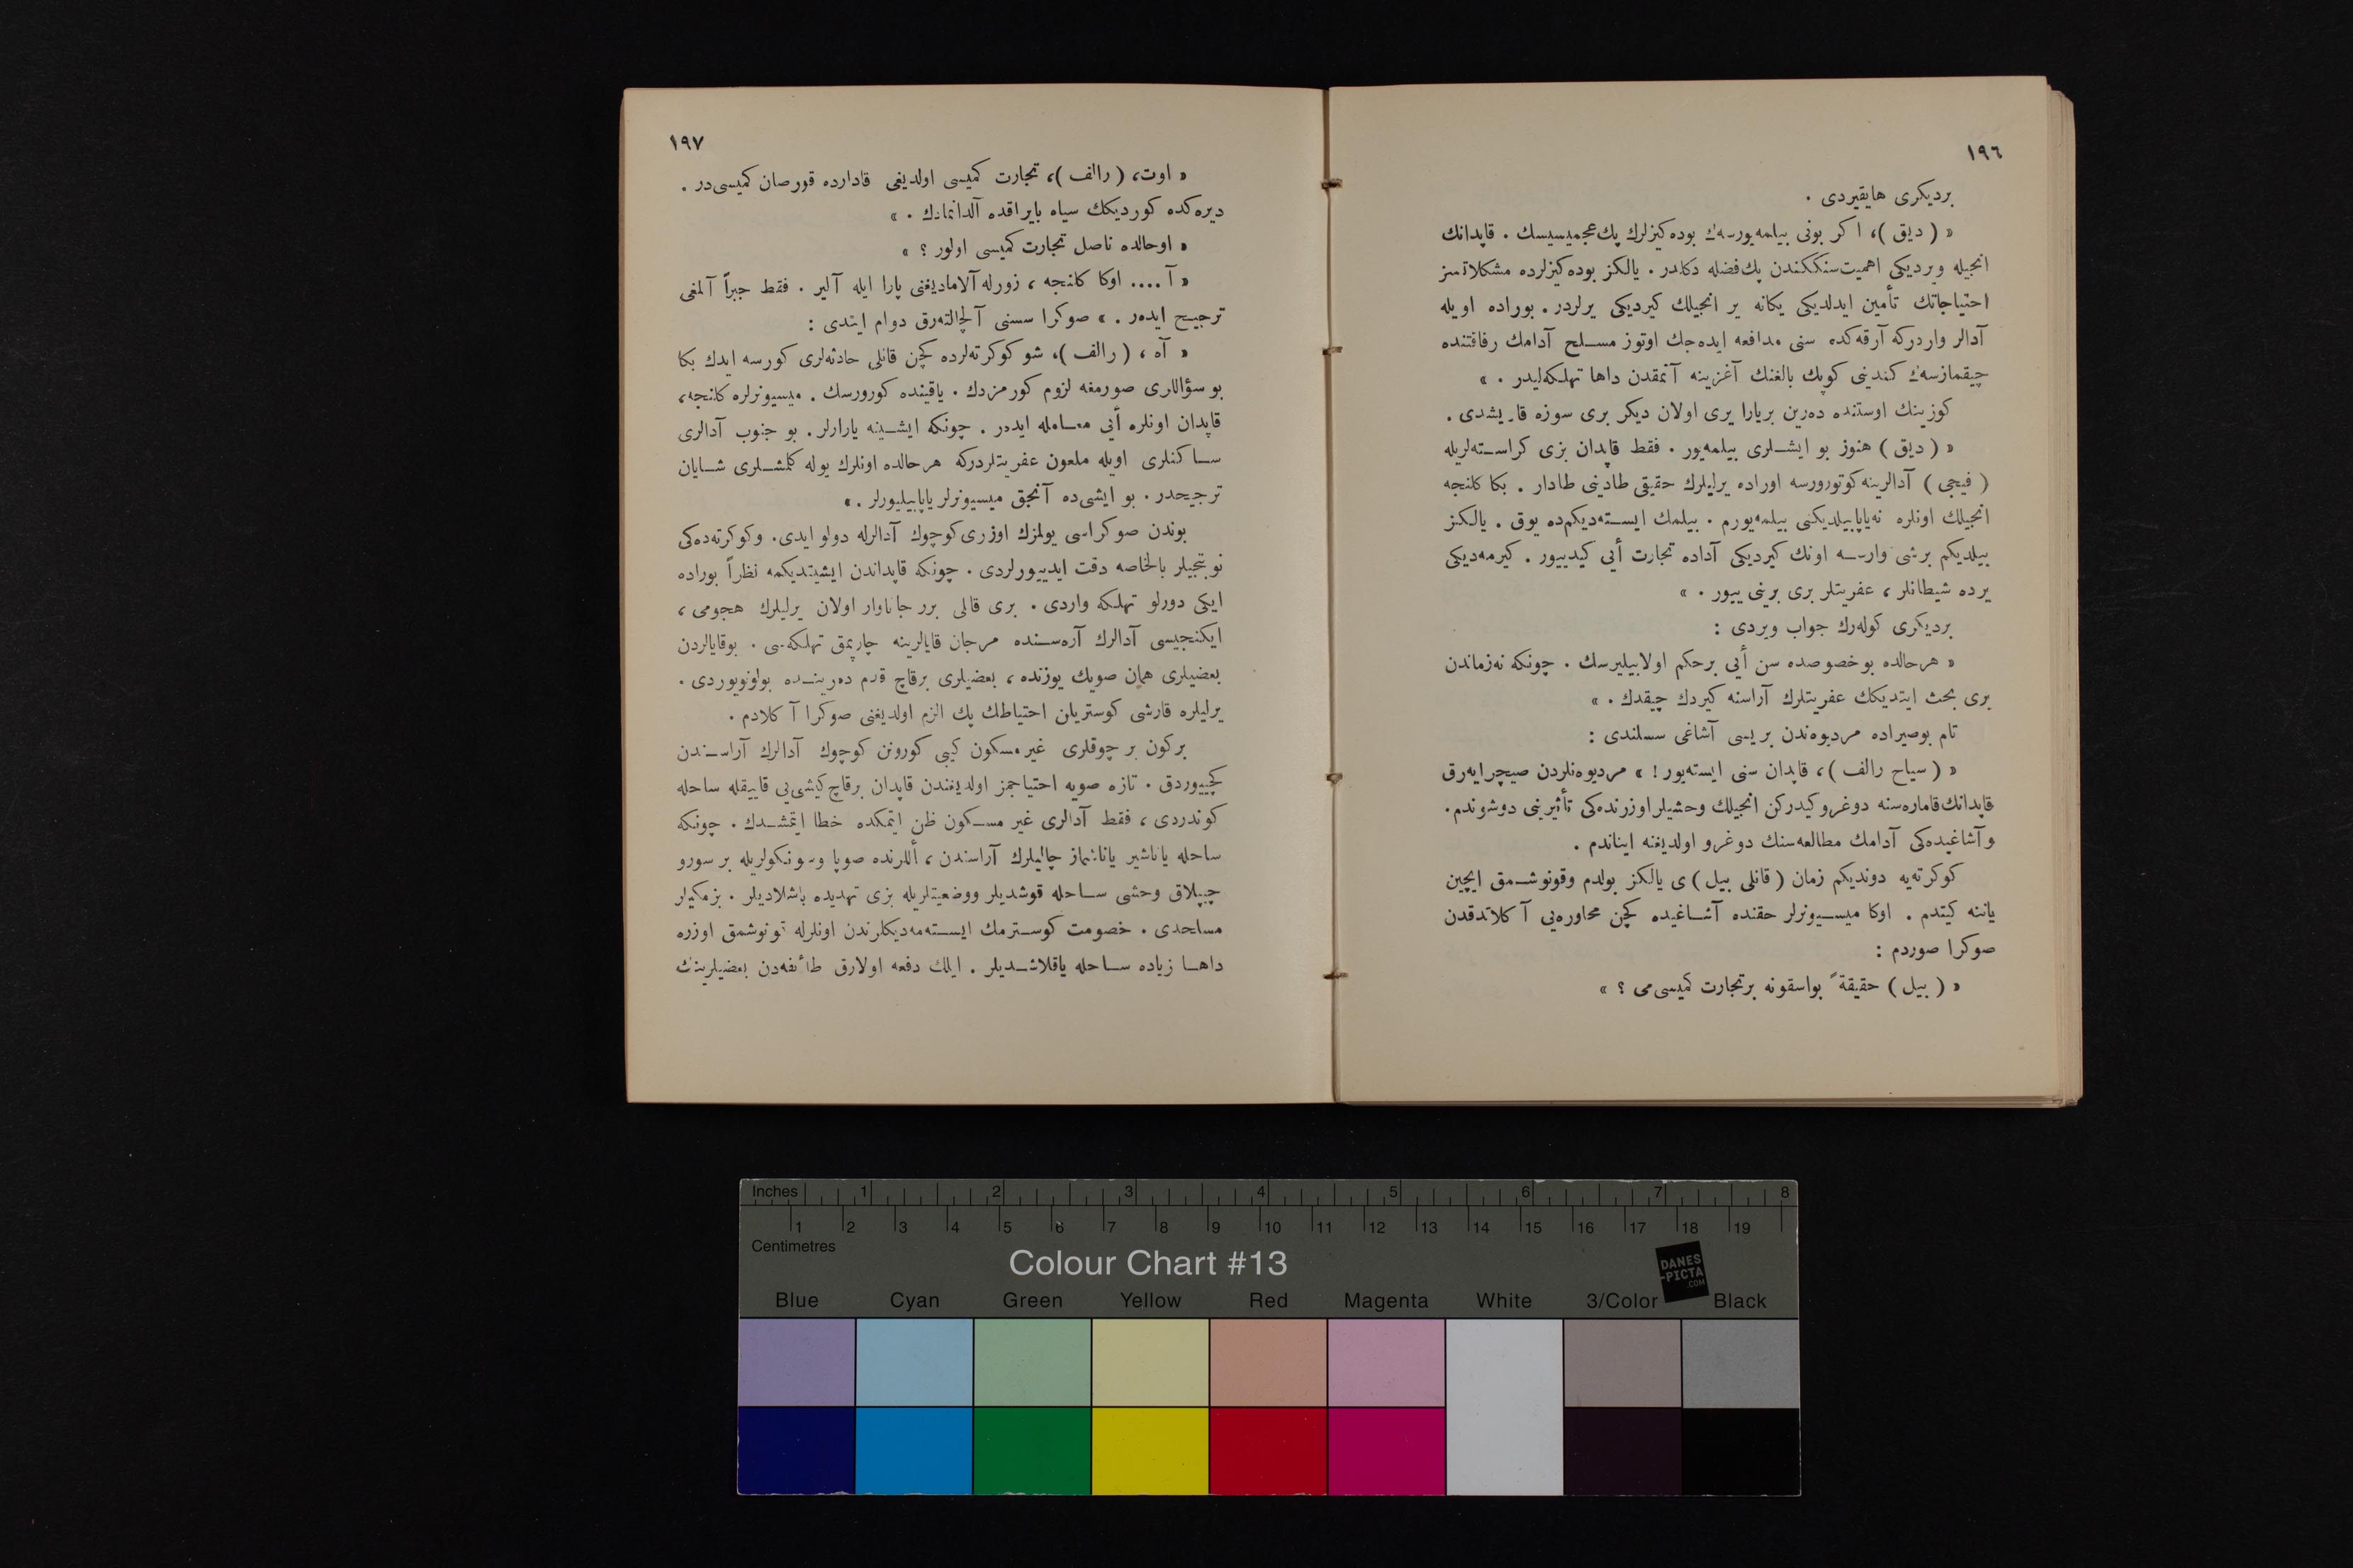 ١٩٦
برديكرى هايقيردى .
« ( ديق )، اكر بونى بيلمه‌يورسه‌ڭ بوده‌كيزلرك پك عجميسيسك . قاپدانك
انجيله ويرديكى اهميت سنككندن پك فضله دكلدر . يالكز بوده‌كيزلرده مشكلاتسز
احتياجاتك تأمين ايدلديكى يكانه ير انجيلك كيرديكى يرلردر . بوراده اويله
آدالر واردركه آرقه‌كده سنى مدافعه ايده‌جك اوتوز مسلح آدامك رفاقتنده
چيقمازسه‌ڭ كنديى كوپك بالغنك آغزينه آتمقدن داها تهلكه‌ليدر . »
كوزينك اوستنده ده‌رين بريارا يرى اولان ديكر برى سوزه قاريشدى .
« ( ديق ) هنوز بو ايشلرى بيلمه‌يور . فقط قاپدان بزى كراسته‌لريله
( فيجى ) آدالرينه كوتورورسه اوراده يرليلرك حقيقى طادينى طادار . بكا كلنجه
انجيلك اونلره نه‌ياپابيلديكنى بيلمه‌يورم . بيلمك ايسته‌ديكم‌ده يوق . يالكز
بيلديكم برشى وارسه اونك كيرديكى آداده تجارت أيى كيدييور . كيرمه‌ديكى
يرده شيطانلر ، عفريتلر برى برينى ييور . »
برديكرى كوله‌رك جواب ويردى :
« هرحالده بوخصوصده سن أيى برحكم اولابيليرسك . چونكه نه‌زماندن
برى بحث ايتديكك عفريتلرك آراسنه كيردك چيقدك . »
تام بوصيراده مرديوه‌ندن بريسى آشاغى سسلندى :
« ( سياح رالف )، قاپدان سنى ايسته‌يور ! » مرديوه‌نلردن صيچرايه‌رق
قاپدانك قاماره‌سنه دوغرو كيدركن انجيلك وحشيلر اوزرنده‌كى تأثيرينى دوشوندم .
وآشاغيده‌كى آدامك مطالعه‌سنك دوغرو اولديغنه ايناندم .
كوكرته‌يه دونديكم زمان ( قانلى بيل ) ى يالكز بولدم وقونوشمق ايچين
ياننه كيتدم . اوكا ميسيونرلر حقنده آشاغيده كچن محاوره‌يى آكلاتدقدن
صوكرا صوردم :
« ( بيل ) حقيقةً بواسقونه برتجارت كميسى‌مى ؟ »
١٩٧
« اوت، ( رالف )، تجارت كميسى اولديغى قادارده قورصان كميسى‌در .
ديره‌كده كورديكك سياه بايراقده آلدانمادك . »
« اوحالده ناصل تجارت كميسى اولور ؟ »
« آ .... اوكا كلنجه ، زورله آلاماديغنى پارا ايله آلير . فقط جبراً آلمغى
ترجيح ايده‌ر . » صوكرا سسنى آلچالته‌رق دوام ايتدى :
« آه ، ( رالف )، شو كوكرته‌لرده كچن قانلى حادثه‌لرى كورسه ايدك بكا
بو سؤاللرى صورمغه لزوم كورمزدك . ياقينده كورورسك . ميسيونرلره كلنجه،
قاپدان اونلره أيى معامله ايده‌ر . چونكه ايشينه يارارلر . بو جنوب آدالرى
ساكنلرى اويله ملعون عفريتلردركه هرحالده اونلرك يوله كلمشلرى شايان
ترجيحدر . بو ايشى‌ده آنجق ميسيونرلر ياپابيليورلر . »
بوندن صوكراسى يولمزك اوزرى كوچوك آدالرله دولو ايدى . وكوكرته‌ده‌كى
نوبتجيلر بالخاصه دقت ايدييورلردى . چونكه قاپداندن ايشيتديكمه نظراً بوراده
ايكى دورلو تهلكه واردى . برى قالى برر جاناوار اولان يرليلرك هجومى ،
ايكنجيسى آدالرك آره‌سنده مرجان قايالرينه چارپمق تهلكه‌سى . بوقايالردن
بعضيلرى همان صويك يوزنده ، بعضيلرى برقاچ قدم ده‌رينده بولونويوردى .
يرليلره قارشى كوستريلن احتياطك پك الزم اولديغنى صوكرا آكلادم .
بركون بر چوقلرى غير مسكون كيبى كورونن كوچوك آدالرك آراسندن
كچييوردق . تازه صويه احتياجمز اولديغندن قاپدان برقاچ كيشى‌يى قاييقله ساحله
كوندردى ، فقط آدالرى غير مسكون ظن ايتمكده خطا ايتمشدك . چونكه
ساحله ياناشير ياناشماز چاليلرك آراسندن ، أللرنده صوپا وسونكولريله بر سورو
چيپلاق وحشى ساحله قوشديلر ووضعيتلريله بزى تهديده باشلاديلر . بزمكيلر
مسلحدى . خصومت كوسترمك ايسته‌مه‌ديكلرندن اونلرله قونوشمق اوزره
داها زياده ساحله ياقلاشديلر . ايلك دفعه اولارق طائفه‌دن بعضيلرينك
Inches 1 2 3 4 5 6 7 8
1 2 3 4 5 6 7 8 9 10 11 12 13 14 15 16 17 18 19
Centimetres
Colour Chart #13
DANES
-PICTA
.COM
Blue Cyan Green Yellow Red Magenta White 3/Color Black